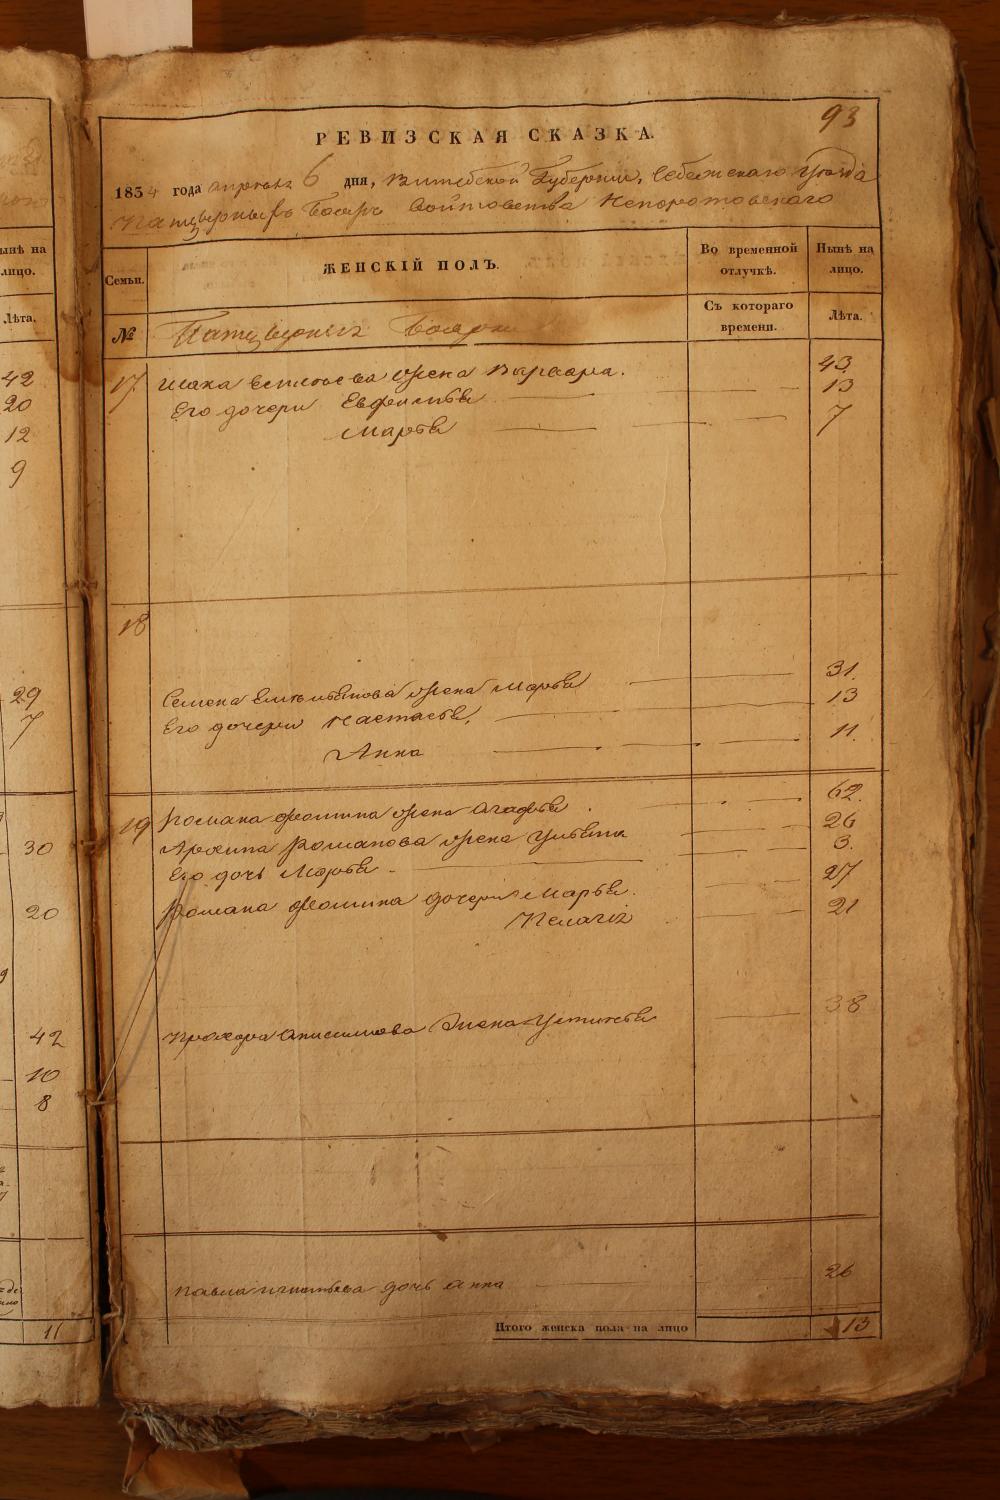 93
РЕВИЗСКАЯ СКАЗКА.
1834 года апреля 6 дня, Витебской Губернии, Себежскаго уезда
Панцырныхъ Бояръ Войтовства Непоротовскаго
Семьи.
ЖЕНСКІЙ ПОЛЪ.
Во временной отлучкѣ.
Нынѣ на лицо.
Съ котораго времени.
Лѣта.
№
Панцырныхъ Бояръ
17 жена Варвара. 43
Его дочери 13
Марья 7
18
Семена Емельянова жена Марья 31.
Его дочери Настасья, 13
Анна 11.
19 Романа Фомина жена Агафья 62.
Архипа Романова жена Ульяна 26
Его дочь Марья 3.
Романа Фомина дочери Марья. 27
Пелагея 21
Прохора Анисимова жена Устинья 38
Павла Игнатьева дочь Анна 26
Итого женска пола на лицо 13
ынѣ на
лицо.
Лѣта.
42
20
12
9
29
7
30
20
42
10
8
11